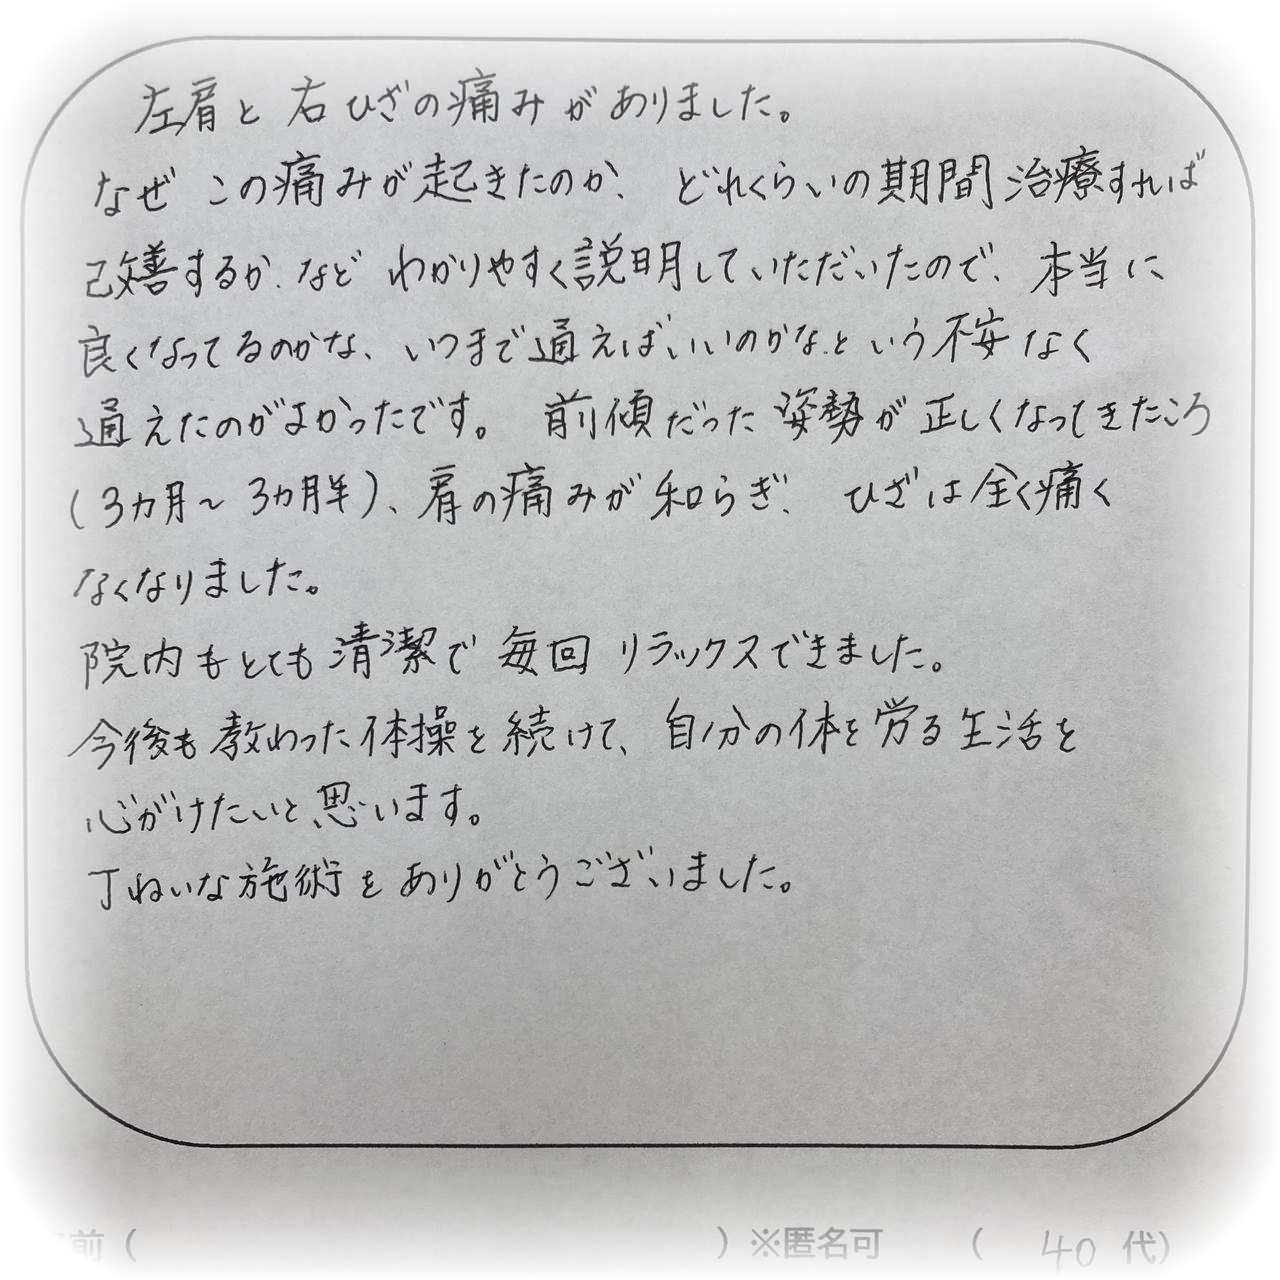 左肩と右ひざの痛みがありました。
なぜこの痛みが起きたのか、どれくらいの期間治療すれば
改善するか、などわかりやすく説明していただいたので、本当に
良くなってるのかな、いつまで通えばいいのかな、という不安なく
通えたのがよかったです。前傾だった姿勢が正しくなってきたころ
(3カ月～3カ月半)、肩の痛みが和らぎ、ひざは全く痛く
なくなりました。
院内もとても清潔で毎回リラックスできました。
今後も教わった体操を続けて、自分の体を労る生活を
心がけたいと思います。
丁ねいな施術をありがとうございました。
前（　　　）※匿名可　（40代）